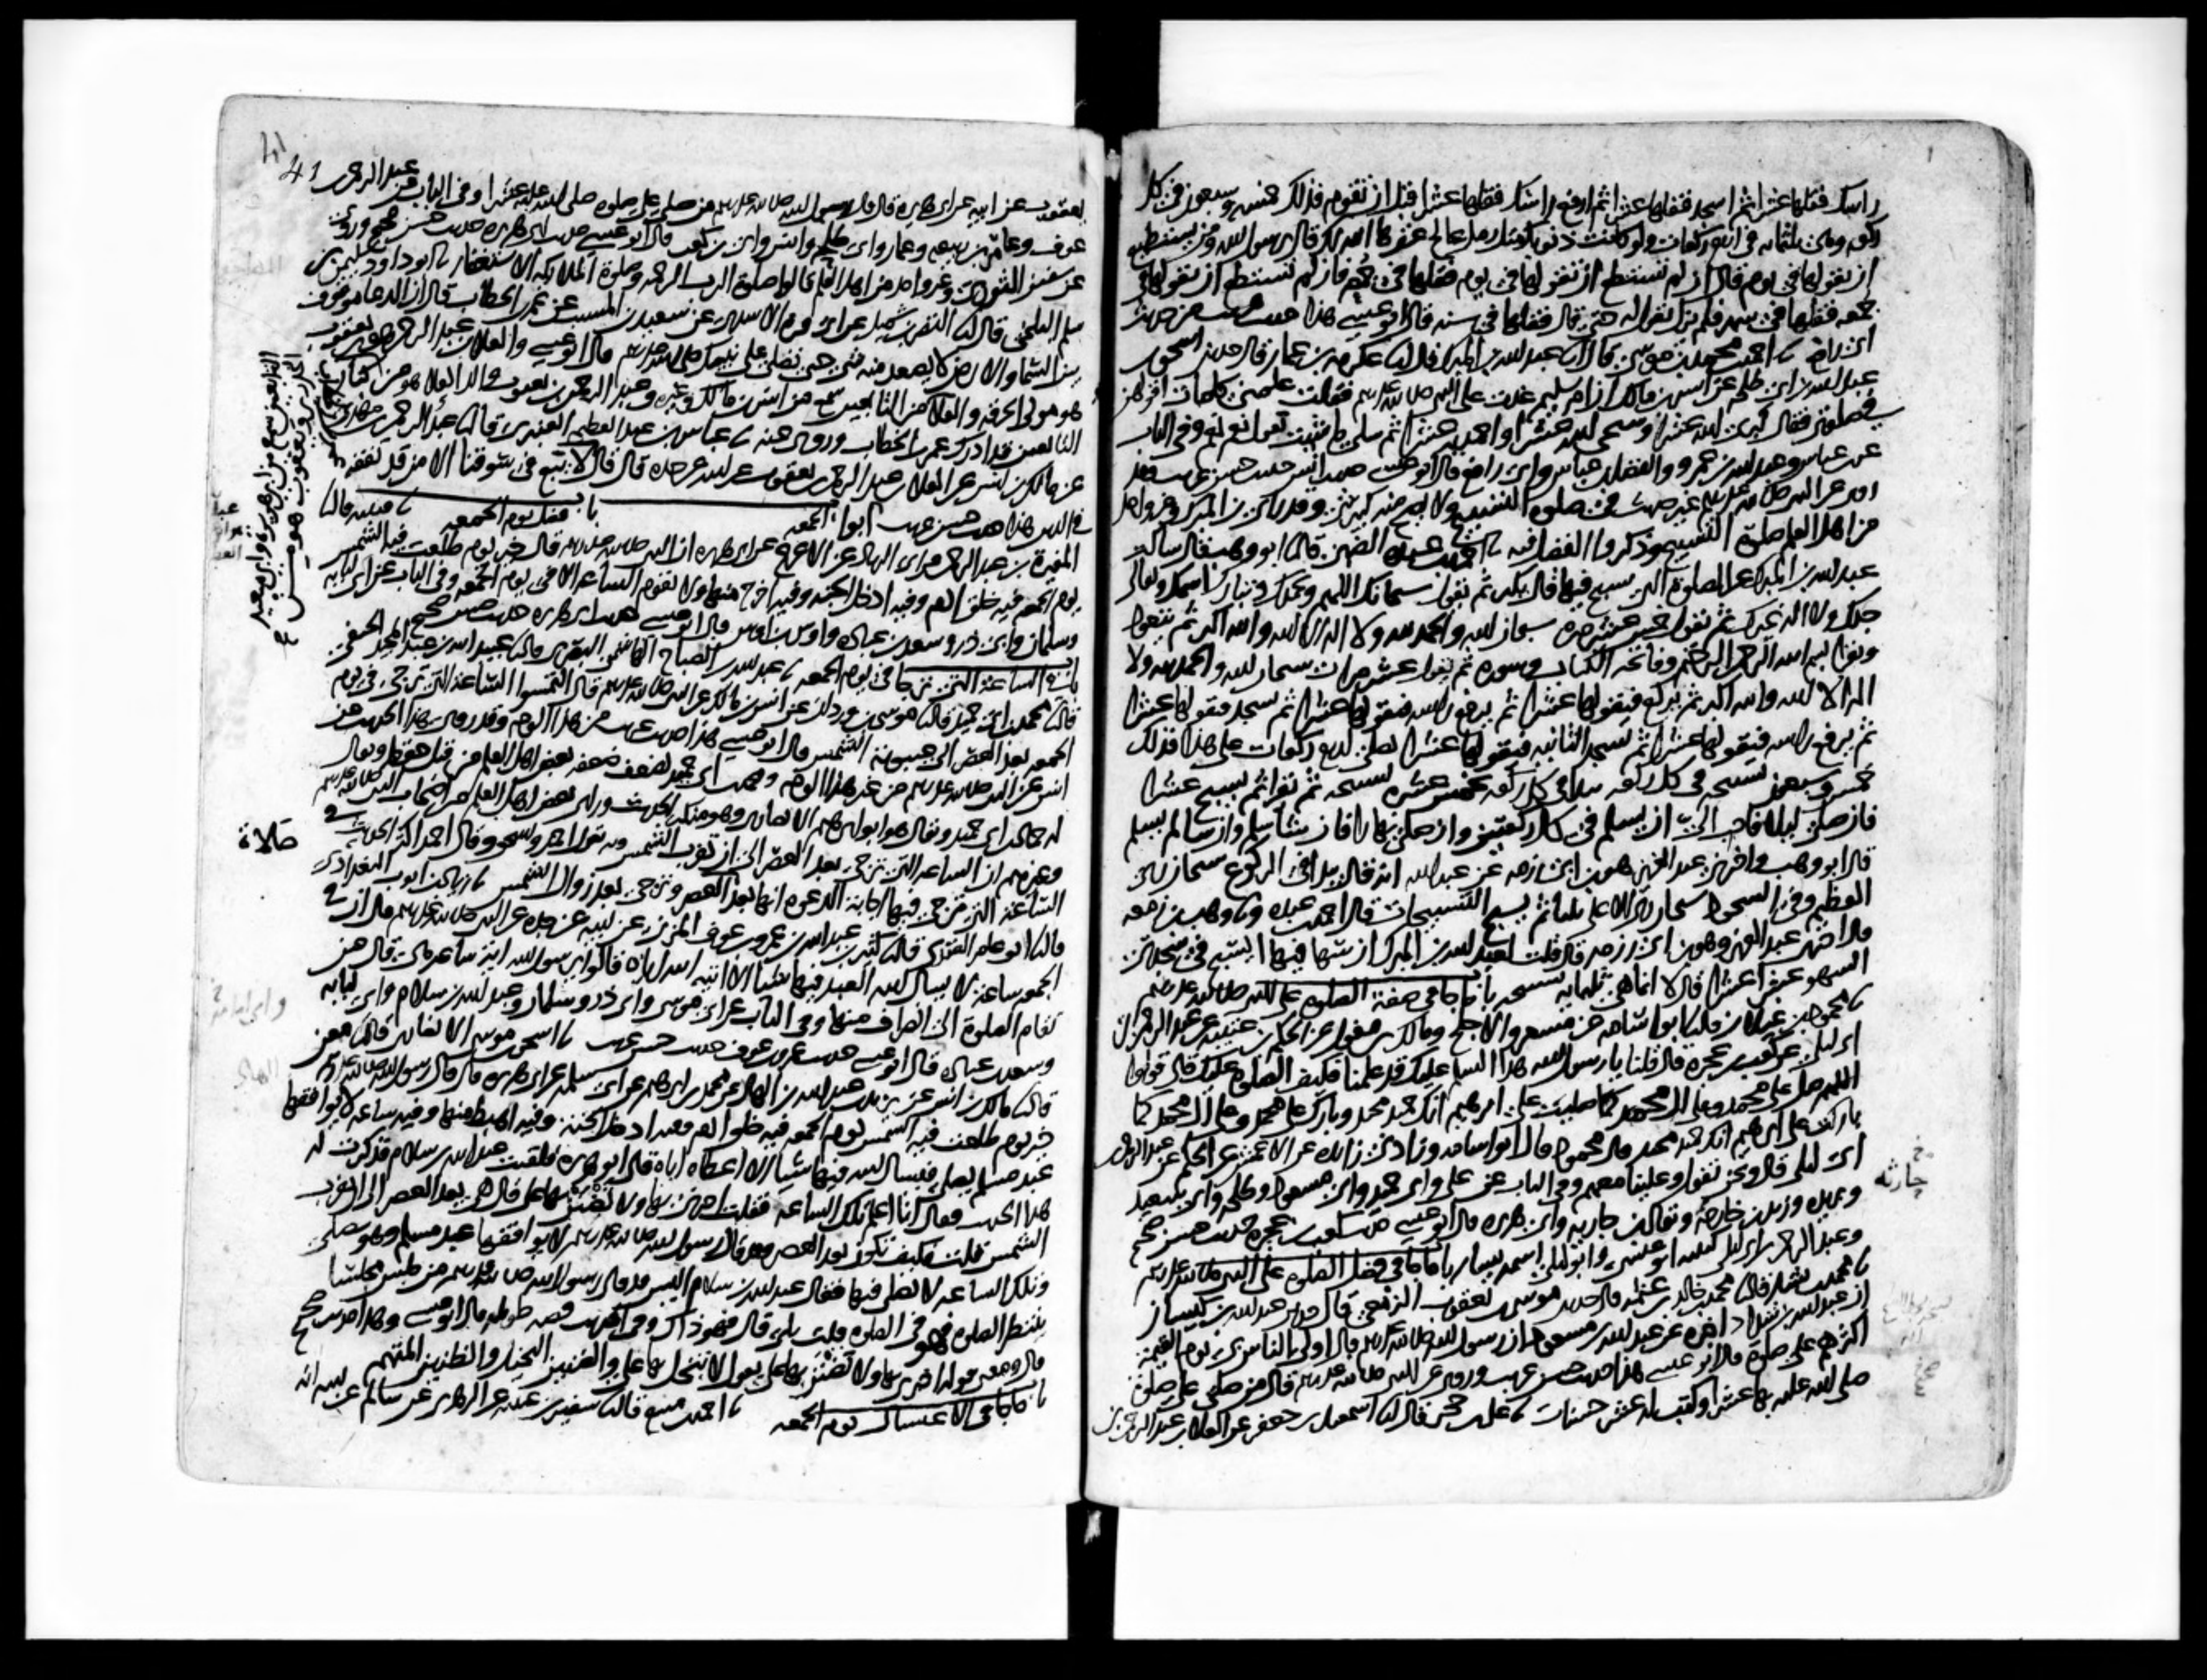 راسك فقلها عشرا ثم اسجد فقلها عشرا ثم ارفع راسك فقلها عشرا قبل ان تقوم فذلك خمس وسبعون في كل
ركعه وهي ثلثمايه في اربع ركعات ولو كانت ذنوبك مثل رمل عالج غفرها الله لك قال يرسول الله ومن يستطيع
ان يقولها في يوم قال ان لم تستطع ان تقولها في يوم فقلها في جمعه فان لم تستطع ان تقولها في
جمعه فقلها في شهر فلم يزل يقول له حتى قال فقلها في سنه قال ابو عيسى هذا حديث غريب من حديث
ابي رافع نا احمد بن محمد بن موسى قال انا عبد الله بن المبرك قال نا عكرمه بن عمار قال حدثني اسحق بن
عبد الله بن ابي طلحه عن انس بن مالك ان ام سليم غدت على النبي صلى الله عليه وسلم فقلت علمني كلمات اقولهن
في صلوتي فقال كبري الله عشرا وسبحي الله عشرا واحمديه عشرا ثم سلي ما شيت يقول نعم نعم وفي الباب
عن ابن عباس وعبد الله بن عمرو والفضل بن عباس وابي رافع قال ابو عيسى حديث انس حديث حسن غريب وقد
روي عن النبي صلى الله عليه وسلم غير حديث في صلوه التسبيح ولا يصح منه كبير شي وقد راى ابن المبرك وغير واحد
من اهل العلم صلوة التسبيح وذكروا الفضل فيه نا احمد بن عبده الضبي قال نا ابو وهب قال سالت
عبد الله بن المبرك عن الصلوة التي يسبح فيها قال يكبر ثم يقول سبحانك اللهم وبحمدك وتبارك اسمك وتعالى
جدك ولا اله غيرك ثم يقول خمس عشره مره سبحان الله والحمد لله ولا اله الا الله والله اكبر ثم يتعوذ
ويقرا بسم الله الرحمن الرحيم وفاتحه الكتاب وسوره ثم يقول عشر مرات سبحان الله والحمد لله ولا
اله الا الله والله اكبر ثم يركع فيقولها عشرا ثم يرفع راسه فيقولها عشرا ثم يسجد فيقولها عشرا
ثم يرفع راسه فيقولها عشرا ثم يسجد الثانيه فيقولها عشرا يصلي اربع ركعات على هذا فذلك
خمس وسبعون تسبيحه في كل ركعه يبدا في كل ركعه بخمس عشره تسبيحه ثم يقرا ثم يسبح عشرا
فان صلى ليلا فاحب الي ان يسلم في كل ركعتين وان صلى نهارا فان شا سلم وان شا لم يسلم
قال ابو وهب واخبرني عبد العزيز هو ابن ابي رزمه عن عبد الله انه قال يبدا في الركوع سبحان ربي
العظيم وفي السجود سبحان ربي الاعلى ثلاثا ثم يسبح التسبيحات قال احمد بن عبده ونا وهب بن زمعه
قال اخبرني عبد العزيز وهو ابن ابي رزمه قال قلت لعبد الله بن المبرك ان سها فيها ايسبح في سجدتي
السهو عشرا عشرا قال لا انما هي ثلثمايه تسبيحه باب ما جا في صفة الصلوه على النبي صلى الله عليه وسلم
نا محمود بن غيلان قال نا ابو اسامه عن مسعر والاجلح ومالك بن مغول عن الحكم بن عتيبه عن عبد الرحمن بن
ابي ليلى عن كعب بن عجرة قال قلنا يا رسول الله هذا السلم عليك قد علمنا فكيف الصلوه عليك قال قولوا
اللهم صل على محمد وعلى ال محمد كما صليت على ابرهيم انك حميد مجيد وبارك على محمد وعلى ال محمد كما
باركت على ابرهيم انك حميد مجيد قال محمود قال ابو اسامه وزادني زايده عن الاعمش عن الحكم عن عبد الرحمن بن
ابي ليلى قال ونحن نقول وعلينا معهم وفي الباب عن علي وابي حميد وابي مسعود وطلحه وابي سعيد
وبريده وزيد بن خارجة ويقال ابن جاريه وابي هريره قال ابو عيسى حديث كعب بن عجره حديث حسن صحيح
وعبد الرحمن بن ابي ليلى كنيته ابو عيسى وابو ليلى اسمه يسار باب ما جا في فضل الصلوه على النبي صلى الله عليه وسلم
نا محمد بن بشار قال نا محمد بن خالد بن عثمه قال حدثني موسى بن يعقوب الزمعي قال حدثني عبد الله بن كيسان
ان عبد الله بن شداد اخبره عن عبد الله بن مسعود ان رسول الله صلى الله عليه وسلم قال اولى الناس بي يوم القيمة
اكثرهم علي صلوة قال ابو عيسى هذا حديث حسن غريب وروي عن النبي صلى الله عليه وسلم قال من صلى علي صلوة
صلى الله عليه بها عشرا وكتب له عشر حسنات نا علي بن حجر قال انا اسمعيل بن جعفر عن العلاء بن عبد الرحمن بن
جارثه
عبد الرحمن 41
يعقوب عن ابيه عن ابي هريره قال قال رسول الله صلى الله عليه وسلم من صلى علي صلوه صلى الله عليه عشرا وفي الباب عن
عوف وعامر بن ربيعه وعمار وابي طلحه وانس وابي بن كعب قال ابو عيسى حديث ابي هريره حديث حسن صحيح وروي
عن سفين الثوري وغير واحد من اهل العلم قالوا صلوة الرب الرحمه وصلوة الملايكه الاستغفار نا ابو داود سليمن بن
سلم البلخي قال نا النضر بن شميل عن ابي قره الاسدي عن سعيد بن المسيب عن عمر بن الخطاب قال ان الدعا موقوف
بين السما والارض لا يصعد منه شي حتى تصلي على نبيك صلى الله عليه وسلم قال ابو عيسى والعلاء بن عبد الرحمن هو ابن يعقوب
هو مولى الحرقه والعلا من التابعين سمع من انس بن مالك وغيره وعبد الرحمن بن يعقوب والد العلا هو من كبار
التابعين قد ادرك عمر بن الخطاب وروى عنه نا عباس بن عبد العظيم العنبري قال نا عبد الرحمن بن مهدي
عن مالك بن انس عن العلا بن عبد الرحمن بن يعقوب عن ابيه عن جده قال قال عمر لا يبع في سوقنا الا من قد تفقه
في الدين هذا حديث حسن غريب ابواب الجمعه باب فضل يوم الجمعه نا قتيبه قال نا
المغيرة بن عبد الرحمن عن ابي الزناد عن الاعرج عن ابي هريره ان النبي صلى الله عليه وسلم قال خير يوم طلعت فيه الشمس
يوم الجمعه فيه خلق ادم وفيه ادخل الجنه وفيه اخرج منها ولا تقوم الساعه الا في يوم الجمعه وفي الباب عن ابي لبابه
وسلمان وابي ذر وسعد بن عباده واوس بن اوس قال ابو عيسى حديث ابي هريره حديث حسن صحيح
باب في الساعه التي ترجا في يوم الجمعه نا عبد الله بن الصباح الهاشمي البصري قال نا عبيد الله بن عبد المجيد الحنفي
قال نا محمد بن ابي حميد قال نا موسى بن وردان عن انس بن مالك عن النبي صلى الله عليه وسلم قال التمسوا الساعه التي ترجى في يوم
الجمعه بعد العصر الى غيبوبة الشمس قال ابو عيسى هذا حديث غريب من هذا الوجه وقد روي هذا الحديث عن
انس عن النبي صلى الله عليه وسلم من غير هذا الوجه ومحمد بن ابي حميد يضعف ضعفه بعض اهل العلم من قبل حفظه ويقال
له حماد بن ابي حميد ويقال هو ابو ابرهيم الانصاري وهو منكر الحديث وراى بعض اهل العلم من اصحاب النبي صلى الله عليه وسلم
وغيرهم ان الساعه التي ترجى بعد العصر الى ان تغرب الشمس وبه يقول احمد واسحق وقال احمد اكثر الحديث في
الساعة التي ترجى فيها اجابة الدعوه انها بعد العصر وترجى بعد زوال الشمس نا زياد بن ايوب البغدادي
قال نا ابو عامر العقدي قال نا كثير بن عبد الله بن عمرو بن عوف المزني عن ابيه عن جده عن النبي صلى الله عليه وسلم قال ان في
الجمعه ساعة لا يسال الله العبد فيها شيئا الا اتاه الله اياه قالوا يرسول الله اية ساعه هي قال حين
تقام الصلوة الى انصراف منها وفي الباب عن ابي موسى وابي ذر وسلمان وعبد الله بن سلام وابي لبابه
وسعد بن عباده قال ابو عيسى حديث عمرو بن عوف حديث حسن غريب نا اسحق بن موسى الانصاري قال نا معن
قال نا مالك بن انس عن يزيد بن عبد الله بن الهاد عن محمد بن ابرهيم عن ابي سلمه عن ابي هريره قال قال رسول الله صلى الله عليه وسلم
خير يوم طلعت فيه الشمس يوم الجمعه فيه خلق ادم وفيه ادخل الجنه وفيه اهبط منها وفيه ساعه لا يوافقها
عبد مسلم يصلي فيسال الله فيها شيئا الا اعطاه اياه قال ابو هريره فلقيت عبد الله بن سلام فذكرت له
هذا الحديث فقال انا اعلم تلك الساعه فقلت اخبرني بها ولا تضنن بها علي قال هي بعد العصر الى ان تغرب
الشمس قلت فكيف تكون بعد العصر وقد قال رسول الله صلى الله عليه وسلم لا يوافقها عبد مسلم وهو يصلي
وتلك الساعه لا يصلى فيها فقال عبد الله بن سلام اليس قد قال رسول الله صلى الله عليه وسلم من جلس مجلسا
ينتظر الصلوه فهو في الصلوه قلت بلى قال فهو ذاك وفي الحديث قصه طويله قال ابو عيسى وهذا حديث صحيح
قال ومعنى قوله اخبرني بها ولا تضنن بها علي يقول لا تبخل بها علي والضنين البخيل والظنين المتهم
باب ما جا في الاغتسال يوم الجمعه نا احمد بن منيع قال نا سفين بن عيينه عن الزهري عن سالم عن ابيه انه
صلاة